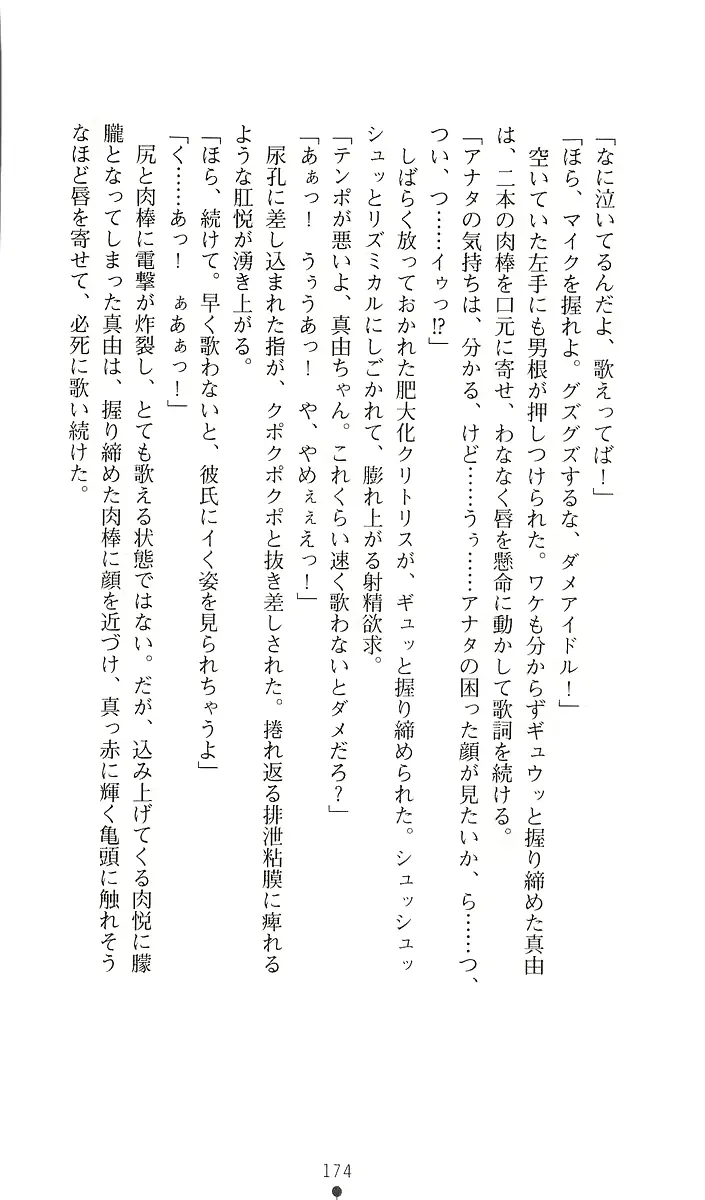 「なに泣いてるんだよ、歌えってば！」
「ほら、マイクを握れよ。グズグズするな、ダメアイドル！」
　空いていた左手にも男根が押しつけられた。ワケも分からずギュウッと握り締めた真由
は、二本の肉棒を口元に寄せ、わななく唇を懸命に動かして歌詞を続ける。
「アナタの気持ちは、分かる、けど……うぅ……アナタの困った顔が見たいか、ら……つ、
つい、つ……イゥっ!?」
　しばらく放っておかれた肥大化クリトリスが、ギュッと握り締められた。シュッシュッ
シュッとリズミカルにしごかれて、膨れ上がる射精欲求。
「テンポが悪いよ、真由ちゃん。これくらい速く歌わないとダメだろ？」
「あぁっ！　うぅうあっ！　や、やめぇぇえっ！」
　尿孔に差し込まれた指が、クポクポクポと抜き差しされた。捲れ返る排泄粘膜に痺れる
ような肛悦が湧き上がる。
「ほら、続けて。早く歌わないと、彼氏にイく姿を見られちゃうよ」
「く……あっ！　ぁあぁっ！」
　尻と肉棒に電撃が炸裂し、とても歌える状態ではない。だが、込み上げてくる肉悦に朦
朧となってしまった真由は、握り締めた肉棒に顔を近づけ、真っ赤に輝く亀頭に触れそう
なほど唇を寄せて、必死に歌い続けた。
174